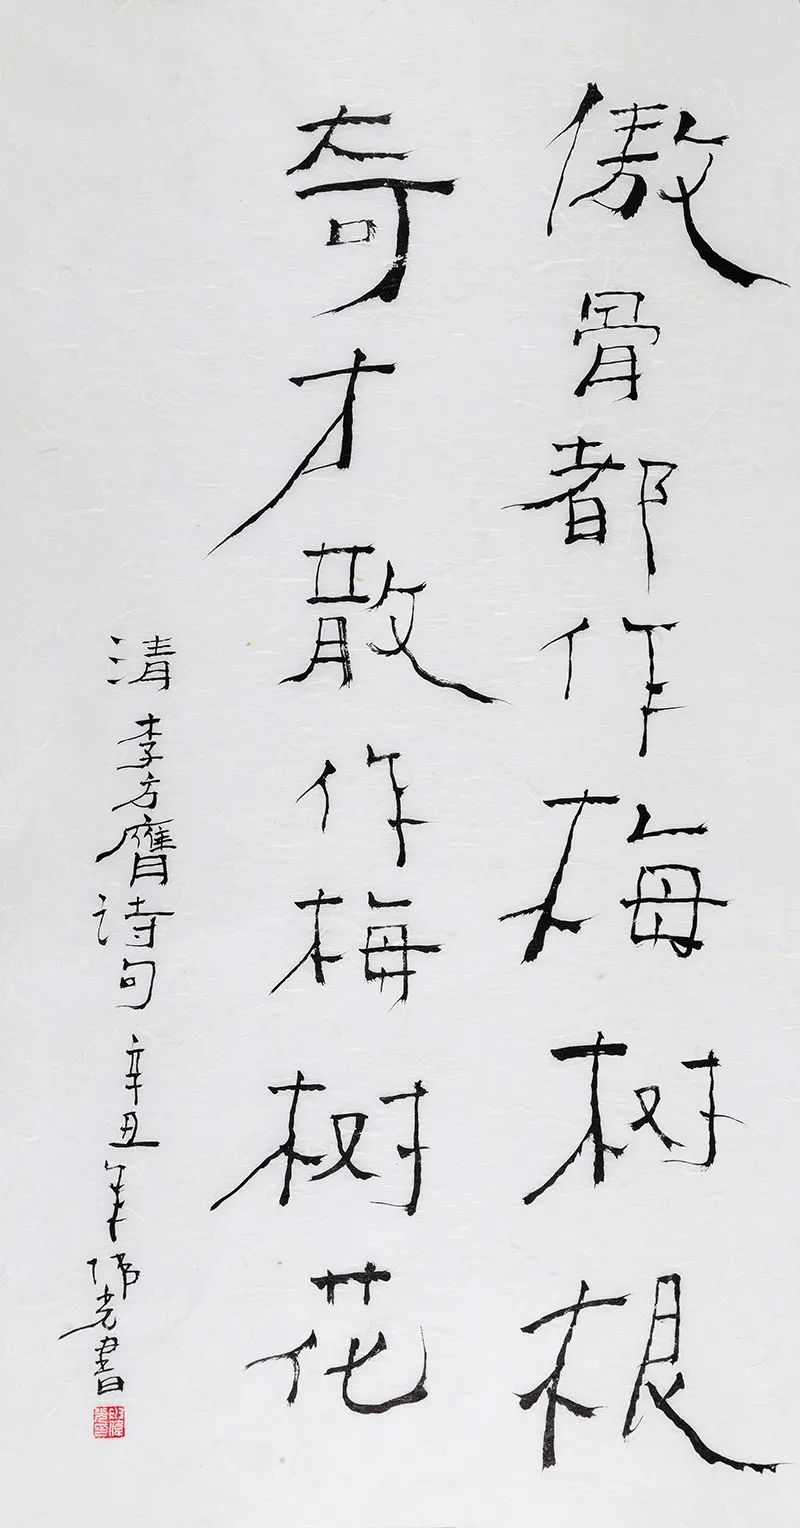 傲骨都作梅树根
奇才散作梅树花
清李方膺诗句辛丑年伟光書